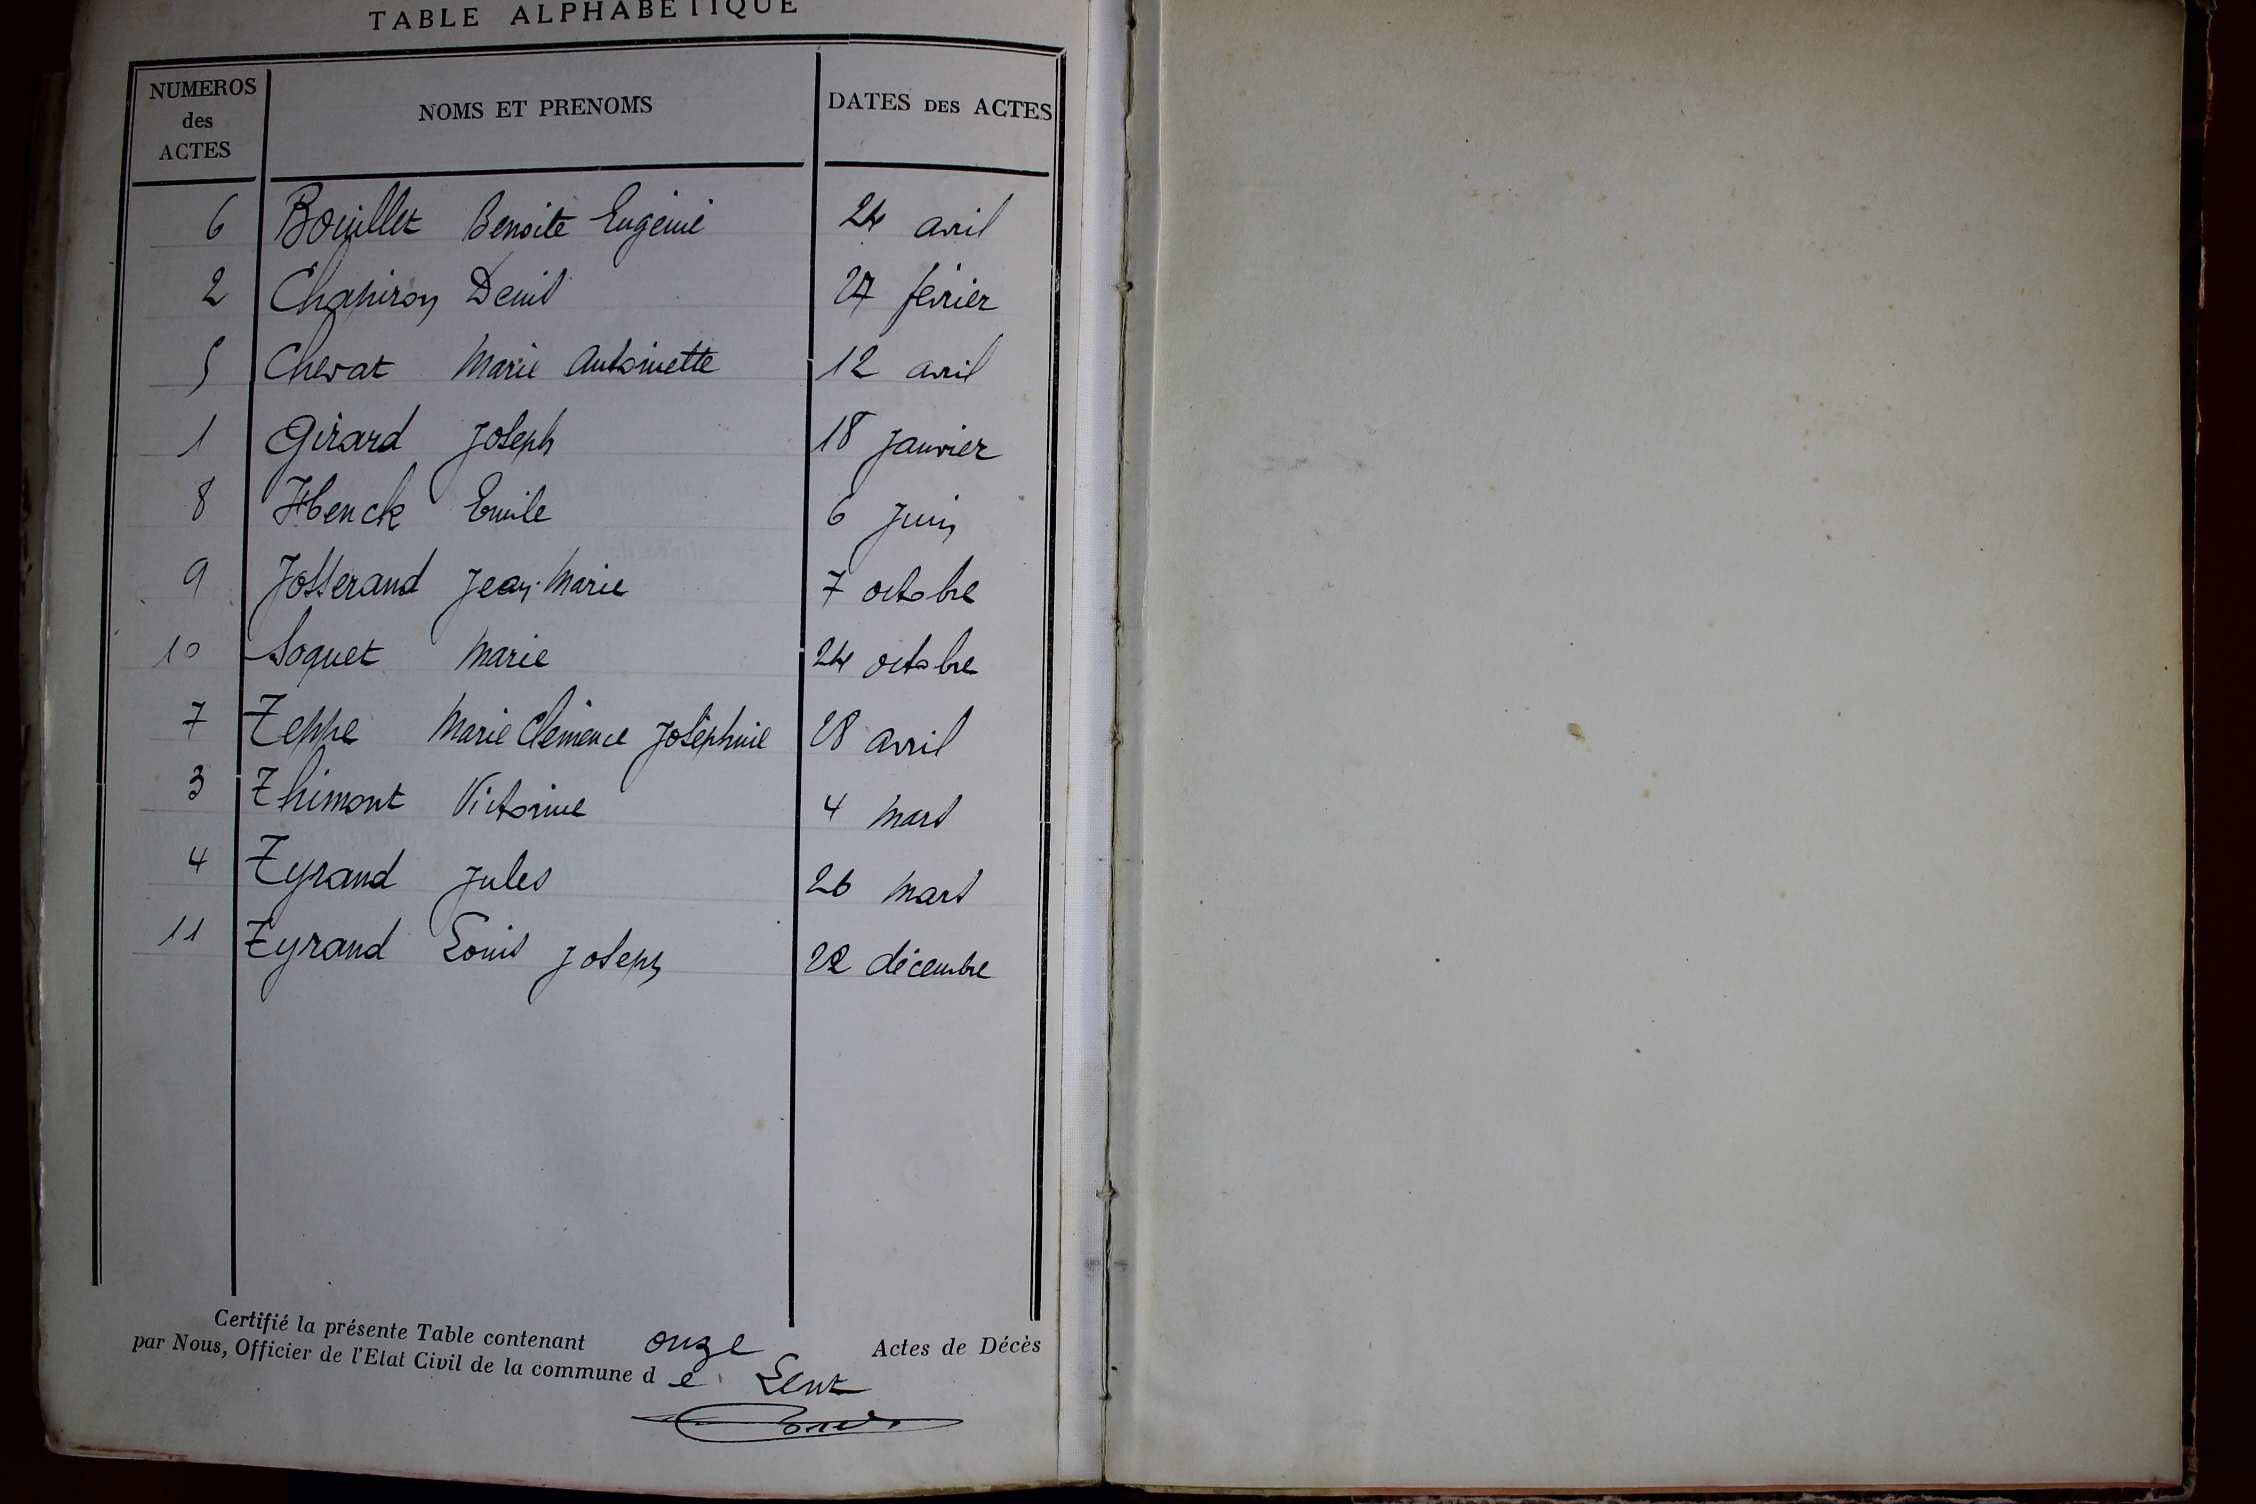 TABLE ALPHABETIQUE
NUMEROS des ACTES NOMS ET PRENOMS DATES DES ACTES
6 Bouillet Benoite Eugénie 24 avril
2 Chapiron Denis 27 février
5 Chevat Marie Antoinette 12 avril
1 Girard Joseph 18 Janvier
8 Henck Emile 6 Juin
9 Josserand Jean-Marie 7 octobre
10 Soquet Marie 24 octobre
7 Teppe Marie Clémence Joséphine 28 avril
3 Thimont Victorine 4 Mars
4 Tyrand Jules 26 Mars
11 Tyrand Louis Joseph 22 décembre
Certifié la présente Table contenant onze Actes de Décès
par Nous, Officier de l'Etat Civil de la commune de Lent